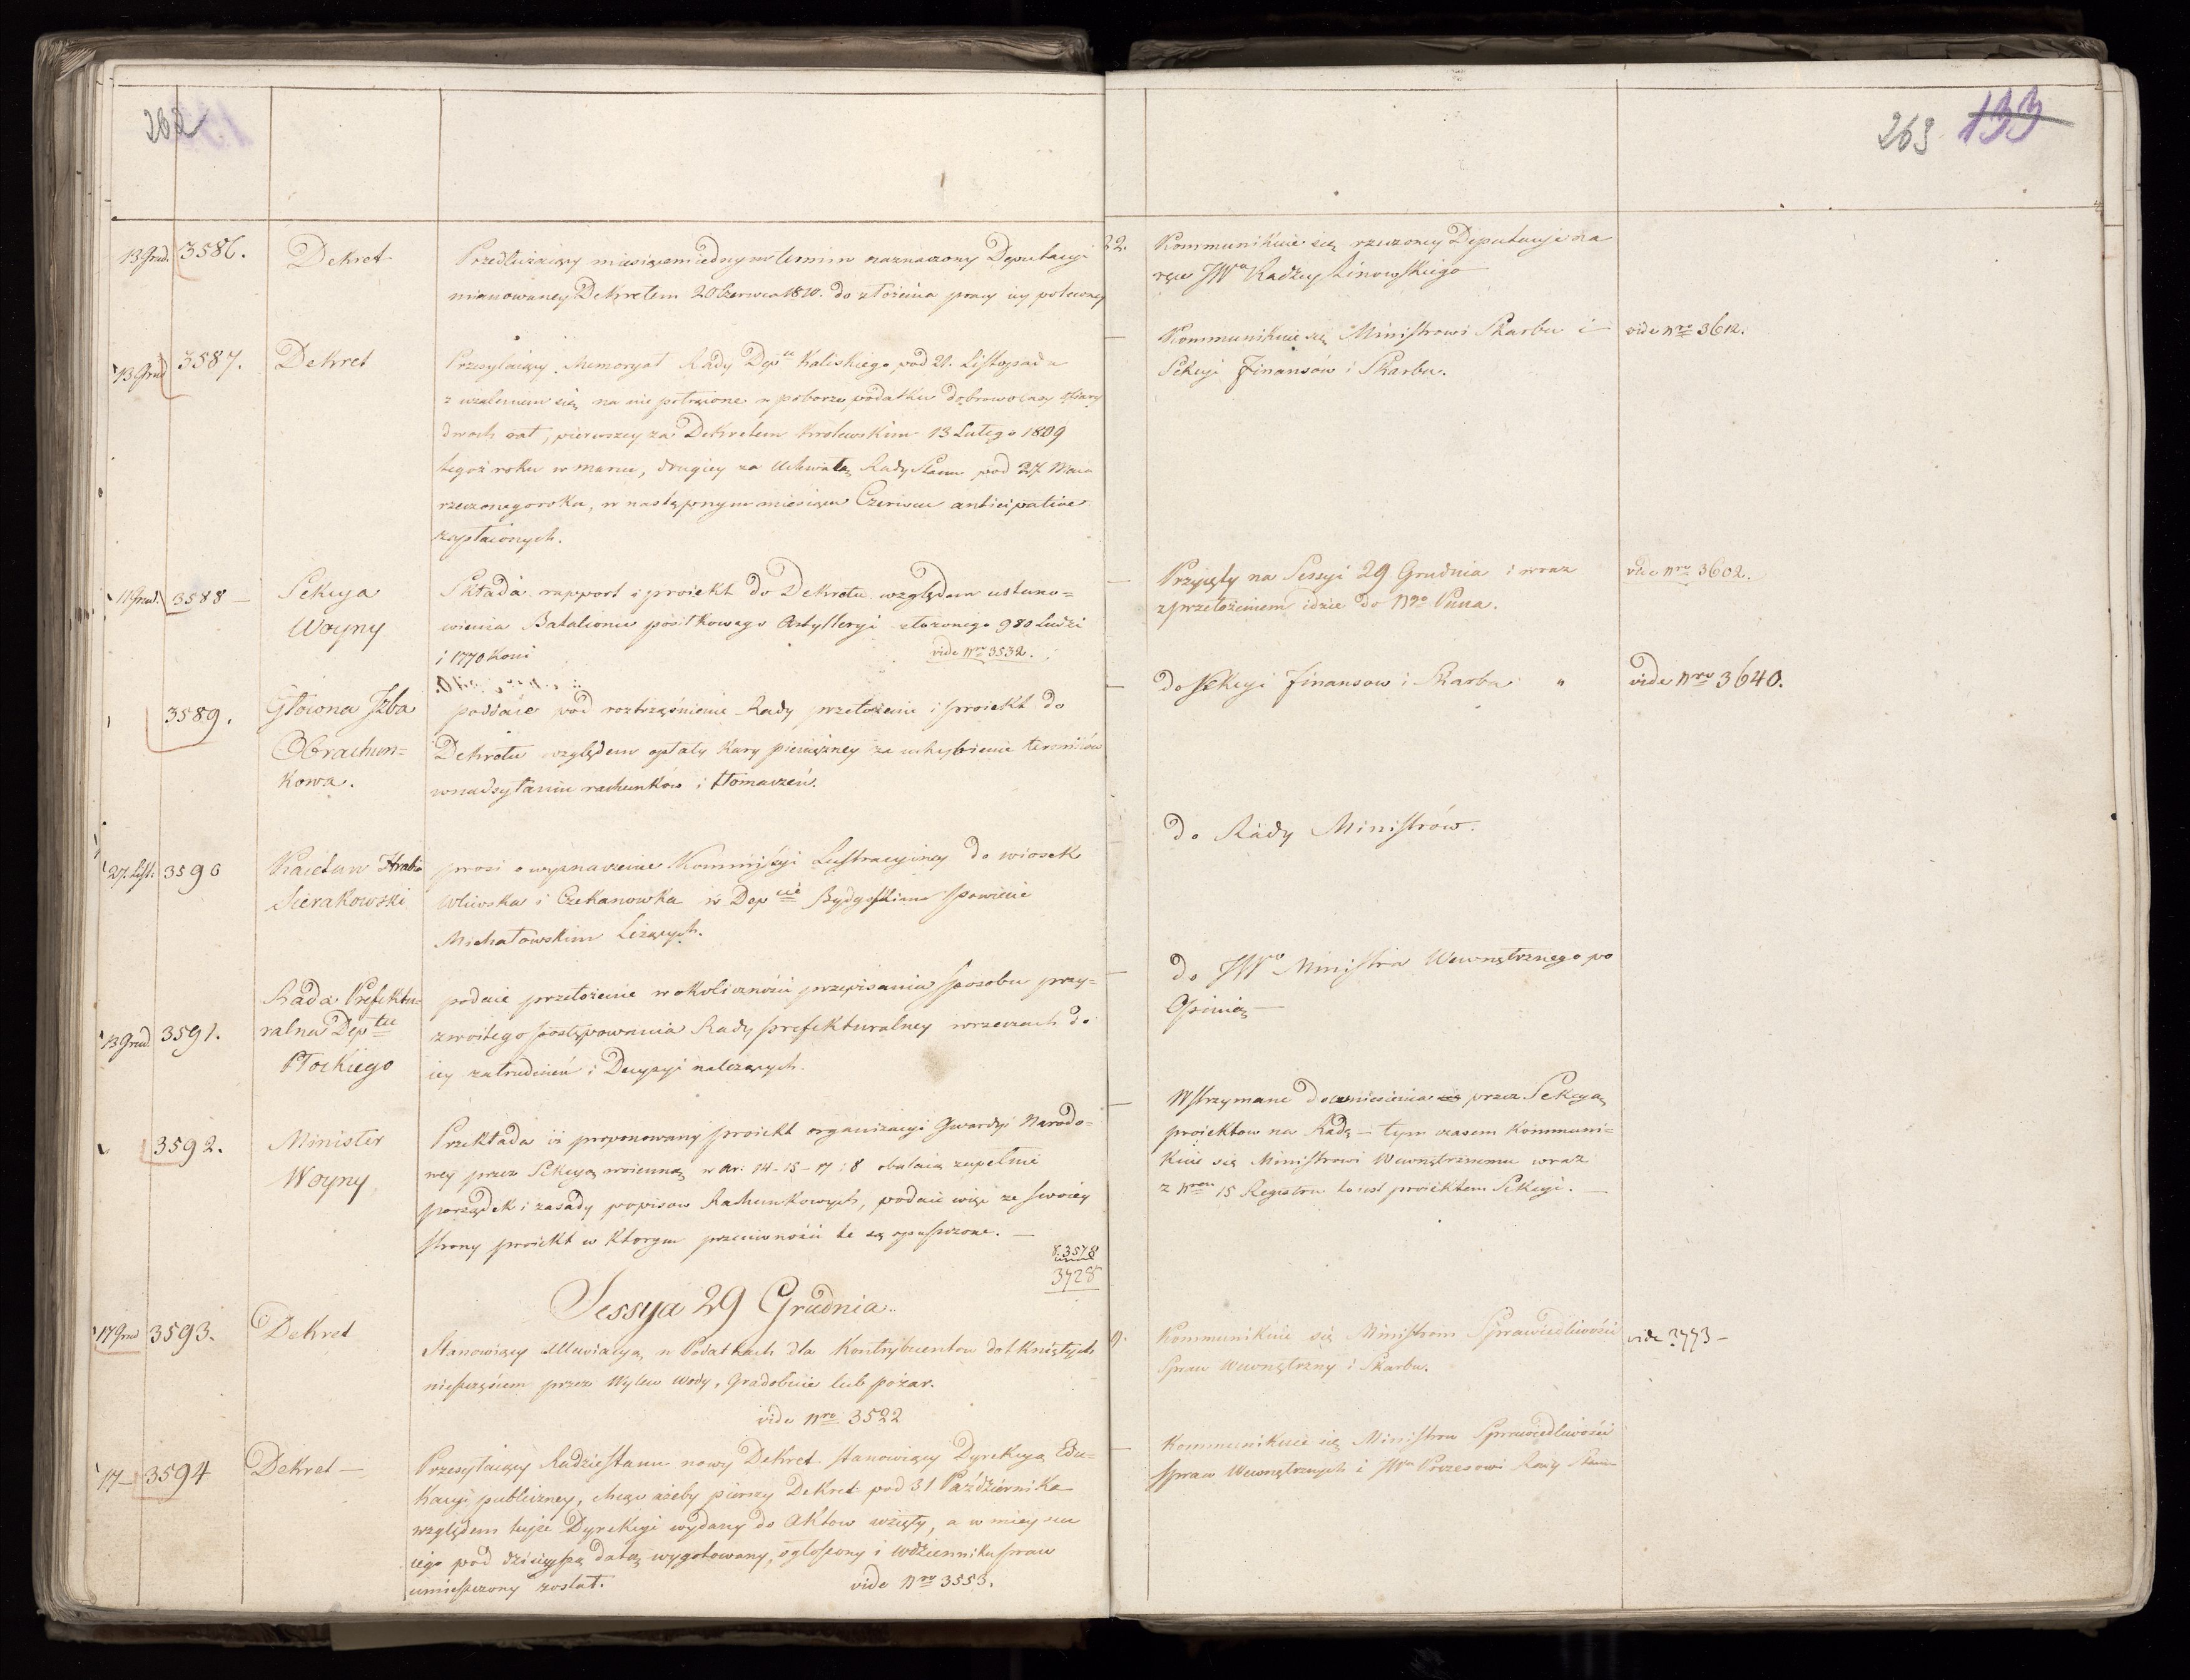 262
263 133
13 Grud. 3586. Dekret
Przedłużaiący miesiącem iednym termin naznaczony Deputacyi
mianowaney Dekretem 20 Czerwca 1810. do złożenia pracy iey poleconey
Kommunikuie się rzeczoney Deputacyi na
ręce JW Radzcy Linowskiego
13 Grud 3587. Dekret
Przesyłaiący Memoryał Rady Dep Kaliskiego pod 21. Listopada
z uzaleniem się na nie potrącone w poborze podatku dobrowolney ofiary
dwoch rat, pierwszey za Dekretem Krolewskim 13 Lutego 1809
tegoż roku w marcu, drugiey za Uchwałą Rady Stanu pod 27 Maia
rzeczonego roku, w następnym miesiącu Czerwcu anticipative
zapłaconych.
Kommunikuie się Ministrowi Skarbu i
Sekcyi Finansów i Skarbu.
vide Nro 3612.
11 Grud. 3588 Sekcya
Woyny
Składa rapport i proiekt do Dekretu względem ustano=
wienia Batalionu posiłkowego Artylleryi złożonego 980 Ludzi
i 1770 Koni
vide Nro 3532.
Przyięty na Sessyi 29 Grudnia i wraz
z przełożeniem idzie do Ngo Pana.
vide Nro 3602.
3589. Głowna Izba
Obrachun=
kowa.
poddaie pod roztrząśnienie Rady przełożenie i proiekt do
Dekretu względem opłaty Kary pieniężney za uchybienie terminów
w nadsyłaniu rachunków i tłomaczeń.
do Sekcyi Finansow i Skarbu "
vide Nro 3640.
27. List. 3590 Wacław Hrabia
Sierakowski
prosi o wyznaczenie Kommissyi Lustracyiney do wiosek
i Czekanowka w Dep Bydgoskim powiecie
Michałowskim Leżących.
do Rady Ministrów.
13 Grud 3591. Rada Prefektu=
ralna Dep tu
Płockiego
podaie przełożenie w okoliczności przepisania sposobu przy=
zwoitego postępowania Rady prefekturalney w rzeczach do
iey zatrudnień i Decyzyi należących.
do JW Ministra Wewnętrznego po
Opinią
3592. Minister
Woyny
Przekłada iż proponowany proiekt organizacyi Gwardyi Narodo=
wey przez Sekcyą woienną w ar: 14-15-17 i 8 obalaią zupełnie
porządek i zasady popisow Rachunkowych, podaie więc ze swoiey
strony proiekt w ktorym przeciwności te są opuszczone.
3578
3728
Wstrzymane do wniesienia przez Sekcyą
proiektow na Radę - tym czasem Kommuni=
kuie się Ministrowi Wewnętrznemu wraz
z Nrem 15 Regestru to iest proiektem Sekcyi.
Sessya 29 Grudnia.
17 Grud 3593. Dekret
Stanowiący Allewiacyą w Podatkach dla Kontrybuentow dotkniętych
nieszczęściem przez Wylew wody, Gradobicie lub pożar.
vide Nro 3522
Kommunikuie się Ministrom Sprawiedliwości
Spraw Wewnętrzny i Skarbu.
vide 3773 -
17 - 3594 Dekret -
Przesyłaiący Radzie Stanu nowy Dekret stanowiący Dyrekcyą Edu=
kacyi publiczney, chcąc ażeby pierwszy Dekret pod 31 Października
względem teyże Dyrekcyi wydany do Aktow wzięty, a w mieyscu
iego pod dzisieyszą datą wygotowany, ogłoszony i w dzienniku praw
umieszczony został.
vide Nro 3553.
Kommunikuie się Ministrom Sprawiedliwości
Spraw Wewnętrznych i JW Prezesowi Rady Stanu